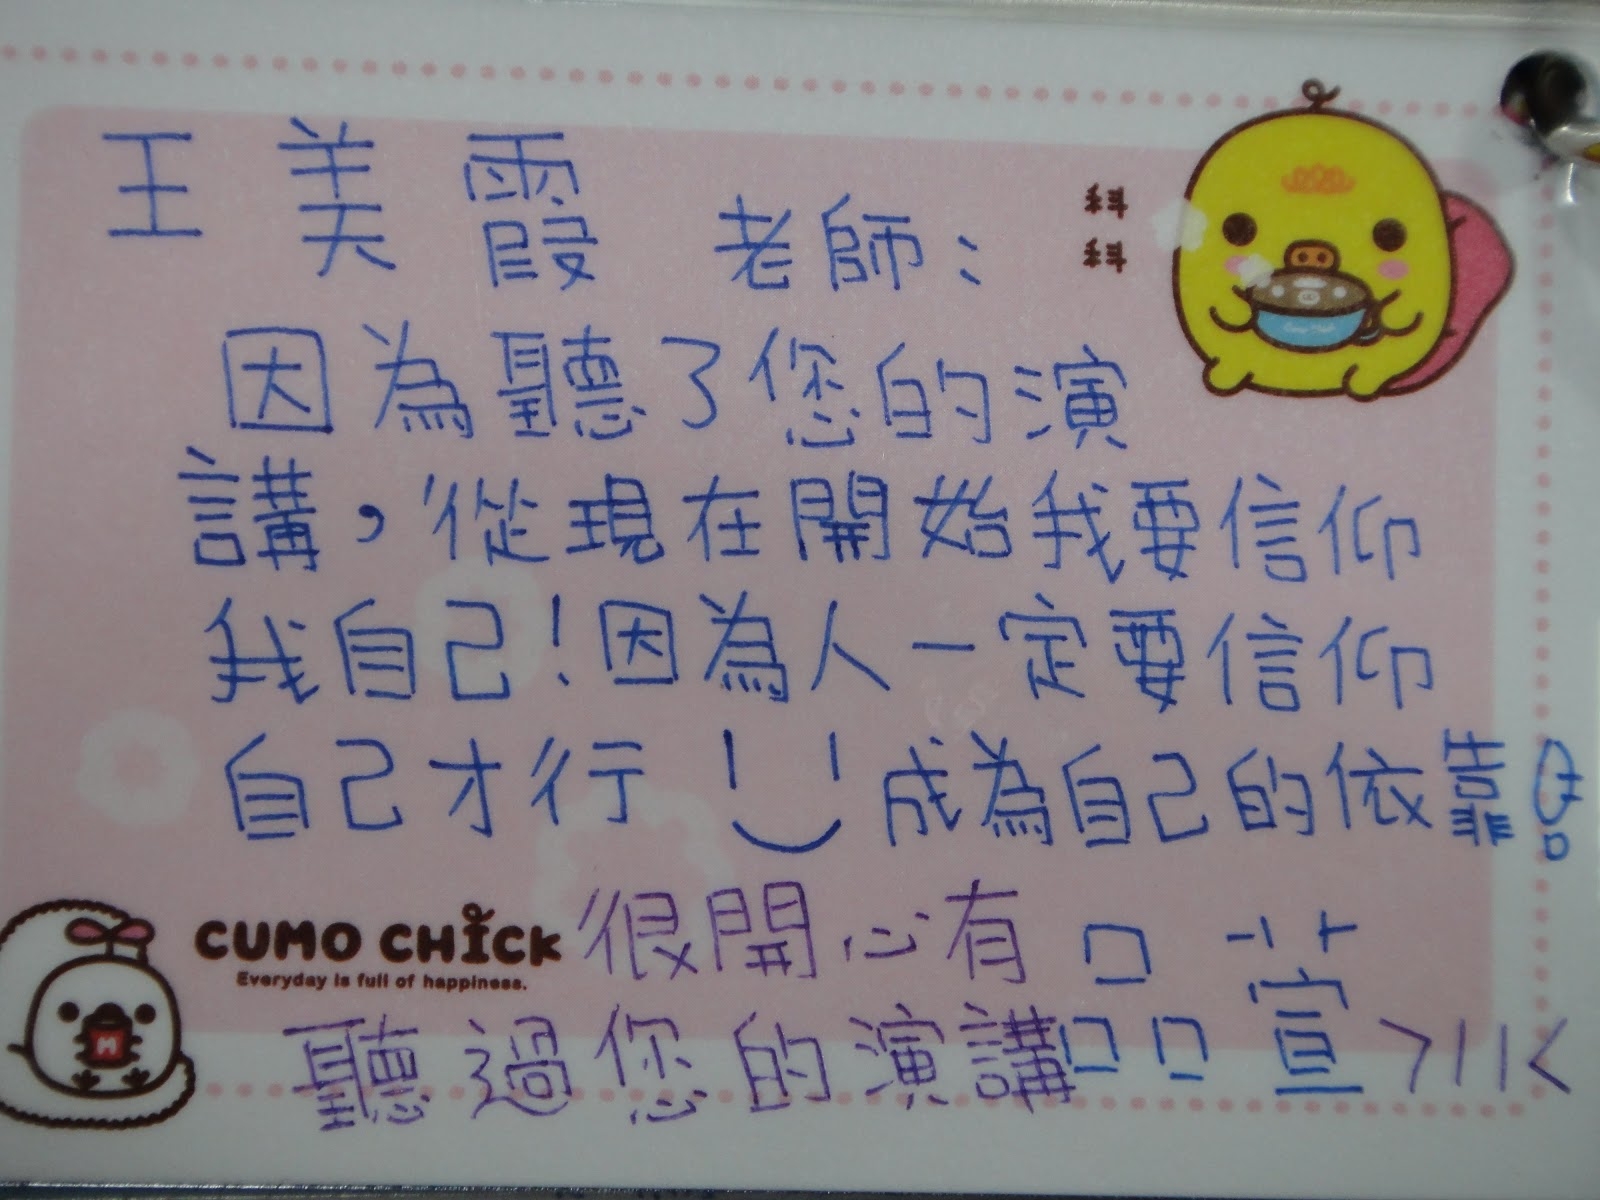 王美霞老師：
科科
因為聽了您的演
講，從現在開始我要信仰
我自己！因為人一定要信仰
自己才行 成為自己的依靠
CUMO CHICK
Everyday is full of happiness.
很開心有
聽過您的演講
品萱